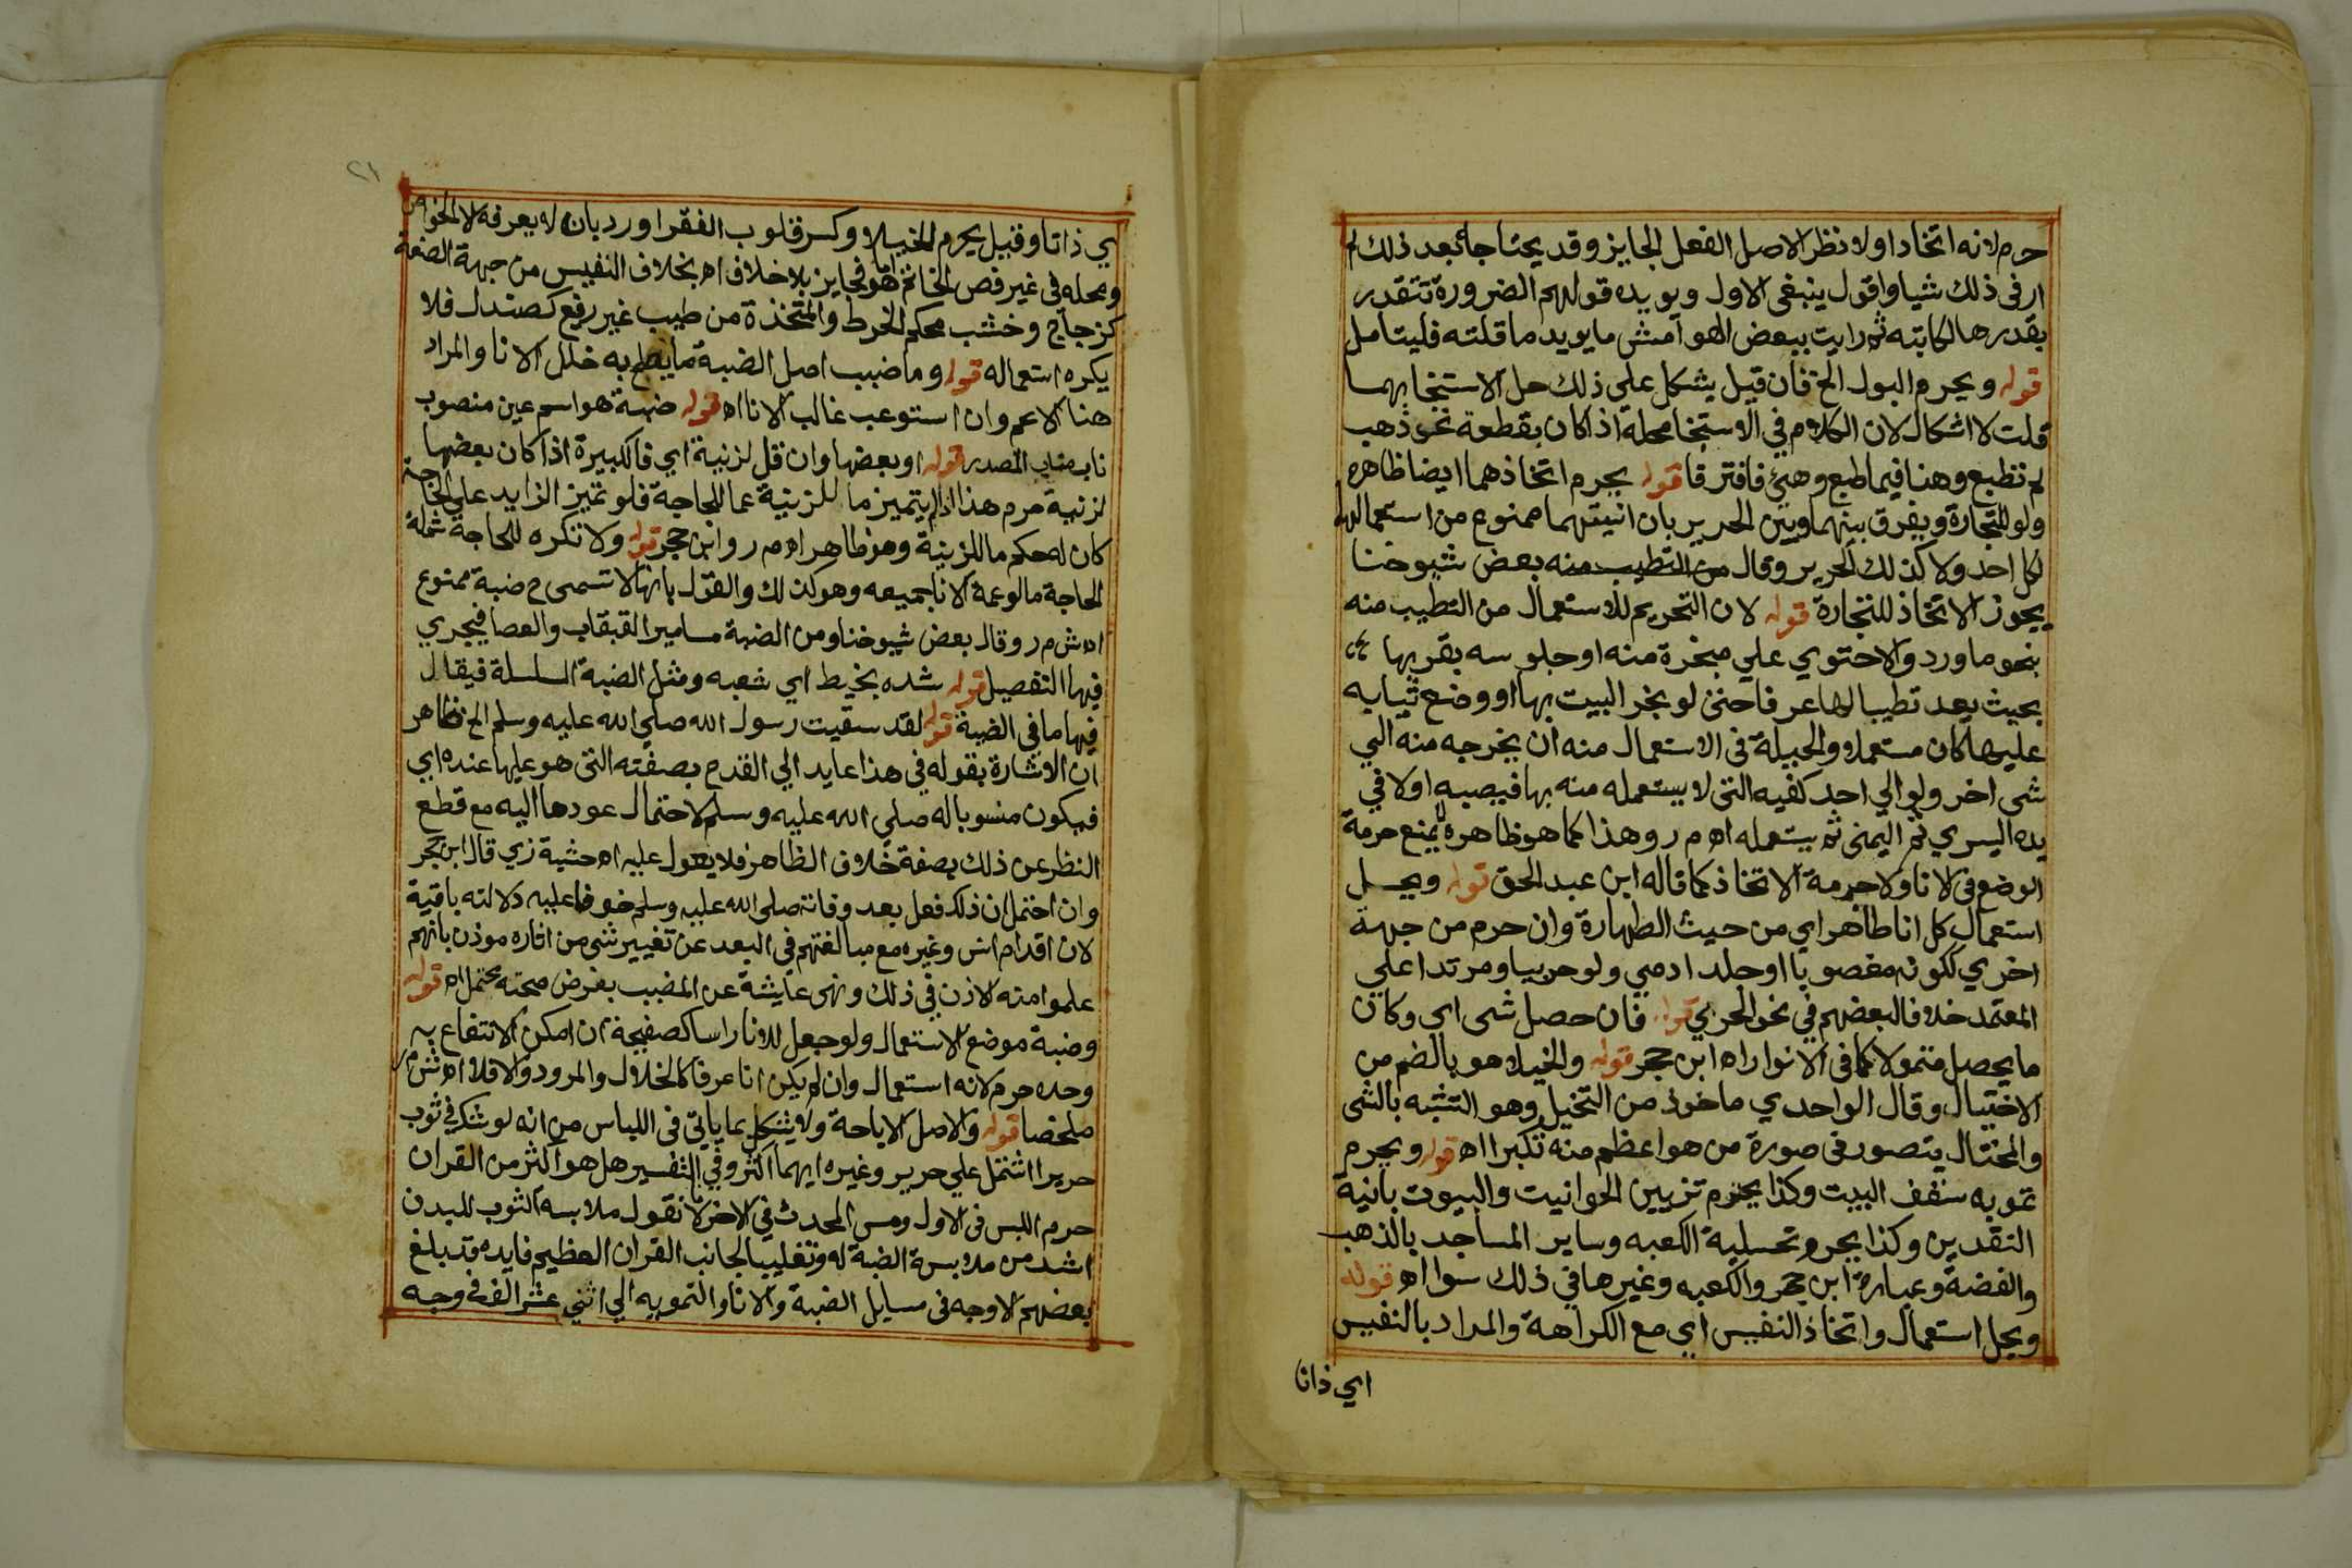 حرم لانه اتخاذ اولا نظر الاصل الفعل الجايز وقد يحتاجا بعد ذلك لم
ار في ذلك شيا واقول ينبغي الاول ويويده قولهم الضرورة تتقدر
بقدرها لكابته ثم رايت ببعض الهوامش ما يويد ما قلته فليتامل
قوله ويحرم البول الخ فان قيل يشكل علي ذلك حل الاستنجا بهما
قلت لا اشكال لان الكلام في الاستنجا محله اذا كان بقطعة نحو ذهب
لم تطبع وهنا فيما طبع وهيئ فافترقا قوله يحرم اتخاذهما ايضا ظاهره
ولو للتجارة ويفرق بينهما وبين الحرير بان انيتهما ممنوع من استعمالها
لكل احد ولا كذلك الحرير وقال من التطيب منه بعض شيوخنا
يجوز الاتخاذ للتجارة قوله لان التحريم للاستعمال من التطيب منه
بنحو ما ورد والاحتوي علي مبخرة منه او جلوسه بقربها
بحيث يعد تطيبا لها عرفا حتى لو بخر البيت بها او وضع ثيابه
عليها كان مستعملا والحيلة في الاستعمال منه ان يخرجه منه الي
شى اخر ولو الي احد كفيه التى لا يستعمله منه بها فيصبه اولا في
يده اليسري ثم اليمنى ثم يستعمله اه م ر وهذا كما هو ظاهر لا يمنع حرمة
الوضع في الانا ولا حرمة الاتخاذ كما قاله ابن عبد الحق قوله ويحل
استعمال كل انا طاهر اي من حيث الطهارة وان حرم من جهة
اخري ككونه مغصوبا او جلد ادمي ولو حربيا ومرتدا علي
المعتمد خلافا لبعضهم في نحو الحربي قوله فان حصل شى اي وكان
ما يحصل متمولا كما في الانوار اه ابن حجر قوله والخيلا هو بالضم من
الاختيال وقال الواحدي ماخوذ من التخيل وهو التشبه بالشى
والمختال يتصور في صورة من هو اعظم منه تكبرا اه قوله ويحرم
تمويه سقف البيت وكذا يحرم تزيين الحوانيت والبيوت بانية
النقدين وكذا يحرم تحلية الكعبه وساير المساجد بالذهب
والفضة وعبارة ابن حجر والكعبه وغيرها في ذلك سوا اه قوله
ويحل استعمال واتخاذ النفيس اي مع الكراهة والمراد بالنفيس
اي ذاتا
٢١
ي ذاتا وقيل يحرم للخيلا وكسر قلوب الفقرا ورد بان لا يعرفه الا الخواص
ومحله في غير فص الخاتم اما هو فجايز بلا خلاف اه بخلاف النفيس من جهة الصنعة
كزجاج وخشب محكم الخرط والمتخذة من طيب غير رفيع كصندل فلا
يكره استعماله قوله وما ضبب اصل الضبة ما يصلح به خلل الانا والمراد
هنا الاعم وان استوعب غالب الانا اه قوله ضبة هو اسم عين منصوب
ناب مناب المصدر قوله او بعضها وان قل لزنية اي فالكبيرة اذا كان بعضها
لزنية حرم هذا اذا لم يتميز ما للزنية عما للحاجة فلو تميز الزايد علي الحاجة
كان له حكم ما للزينة وهو ظاهر اه م ر وابن حجر قوله ولا تكره للحاجة شمله
الحاجة ما لو عمه الانا جميعه وهو كذلك والقول بانها لا تسمى ح ضبة ممنوع
اه ش م ر وقال بعض شيوخنا ومن الضبة مسامير القبقاب والعصا فيجري
فيها التفصيل قوله شده بخيط اي شعبه ومثل الضبة السلسلة فيقال
فيها ما في الضبة قوله لقد سقيت رسول الله صلي الله عليه وسلم الخ ظاهر
ان الاشارة بقوله في هذا عايد الي القدح بصفته التى هو عليها عنده اي
فيكون منسوبا له صلي الله عليه وسلم لاحتمال عودها اليه مع قطع
النظر عن ذلك بصفة خلاف الظاهر فلا يعول عليه اه حشية زي قال ابن حجر
وان احتمل ان ذلك فعل بعد وفاته صلى الله عليه وسلم خوفا عليه دلالته باقية
لان اقدام انس وغيره مع مبالغتهم في البعد عن تغيير شى من اثاره موذن بانهم
علموا منه الاذن في ذلك ونهى عايشة عن المضبب بفرض صحته محتمل اه قوله
وضبة موضع الاستعمال ولو جعل للانا راسا كصفيحة ان امكن الانتفاع به
وحده حرم لانه استعمال وان لم يكن انا عرفا كالخلال والمرود والا فلا اه ش م ر
ملخصا قوله والاصل الاباحة ولا يشكل بما ياتي في اللباس من انه لو شك في ثوب
حريرا اشتمل علي حرير وغيره ايهما اكثر وفي التفسير هل هو اكثر من القران
حرم اللبس في الاول ومس المحدث في الاخر لانا نقول ملابسة الثوب للبدن
اشد من ملابسة الضبة له وتغليبا لجانب القران العظيم فايده قد بلغ
بعضهم الاوجه في مسايل الضبة والانا والتمويه الي اثني عشر الف وجه